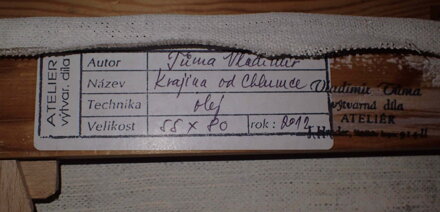 ATELIER
výtvar. díla
Autor Tůma Vladimír
Název Krajina od Chlumce
Technika olej
Velikost 55 x 80 rok: 2012
Vladimír Tůma
výtvarná díla
ATELIÉR